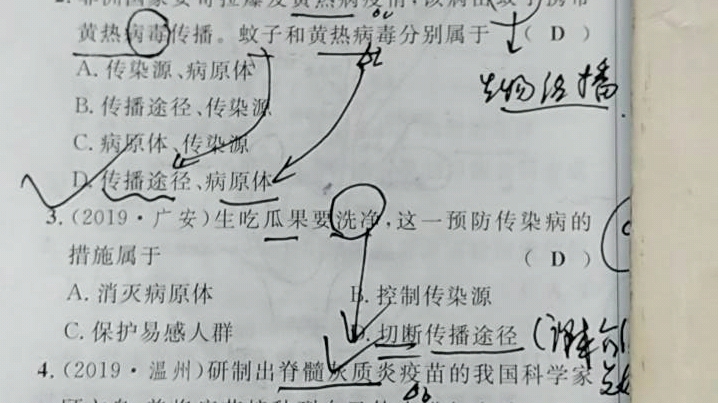 黄热病毒传播。蚊子和黄热病毒分别属于 ( D )
A. 传染源、病原体
生物传播
B. 传播途径、传染源
C. 病原体、传染源
D. 传播途径、病原体
3. (2019·广安)生吃瓜果要洗净,这一预防传染病的
措施属于 ( D )
A. 消灭病原体 B. 控制传染源
C. 保护易感人群 D. 切断传播途径
4. (2019·温州)研制出脊髓灰质炎疫苗的我国科学家